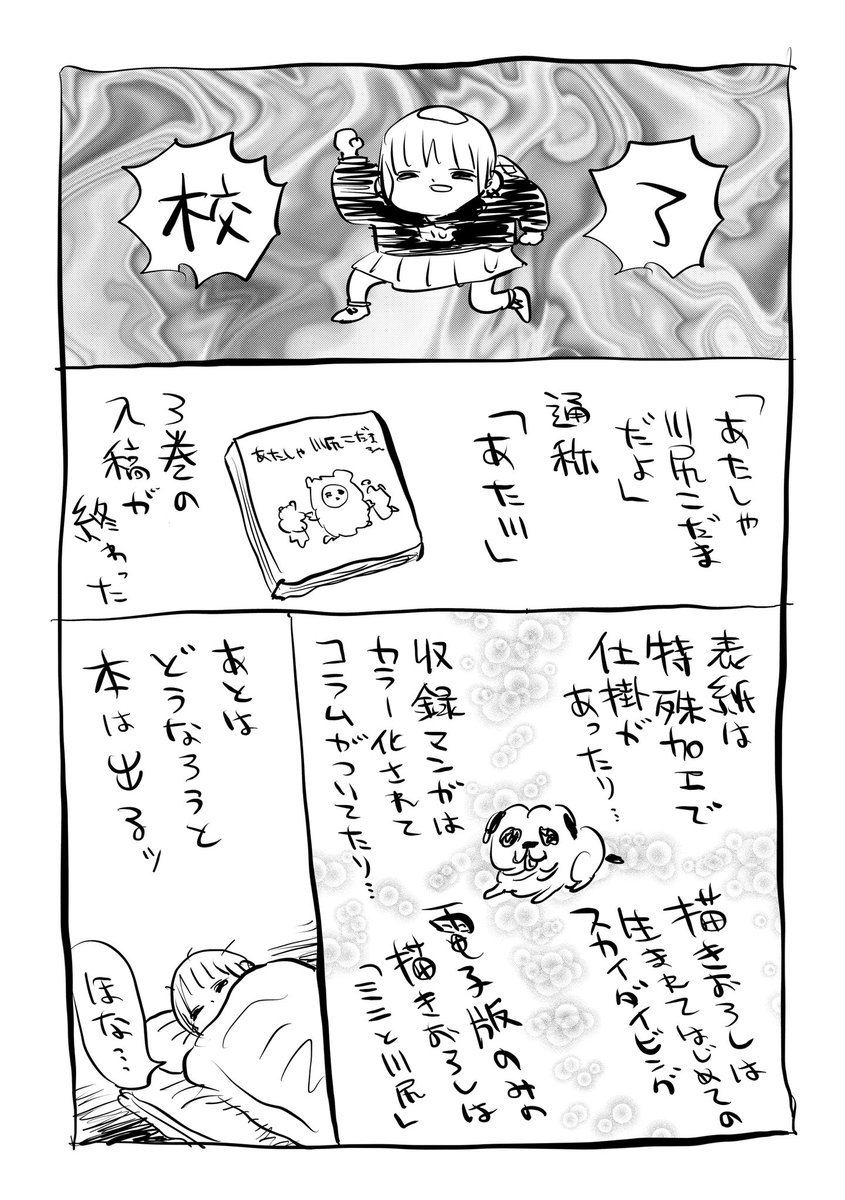 校
了
「あたしゃ
川尻こだま
だよ」
通称
「あた川」
あたしゃ川尻こだま
3巻の
入稿が
終わった
表紙は
特殊加工で
仕掛が
あったり…
収録マンガは
カラー化されて
コラムがついてたり…
描きおろしは
生まれてはじめての
スカイダイビング
電子版のみの
描きおろしは
「ミニと川尻」
あとは
どうなろうと
本は出るッ
ほな…